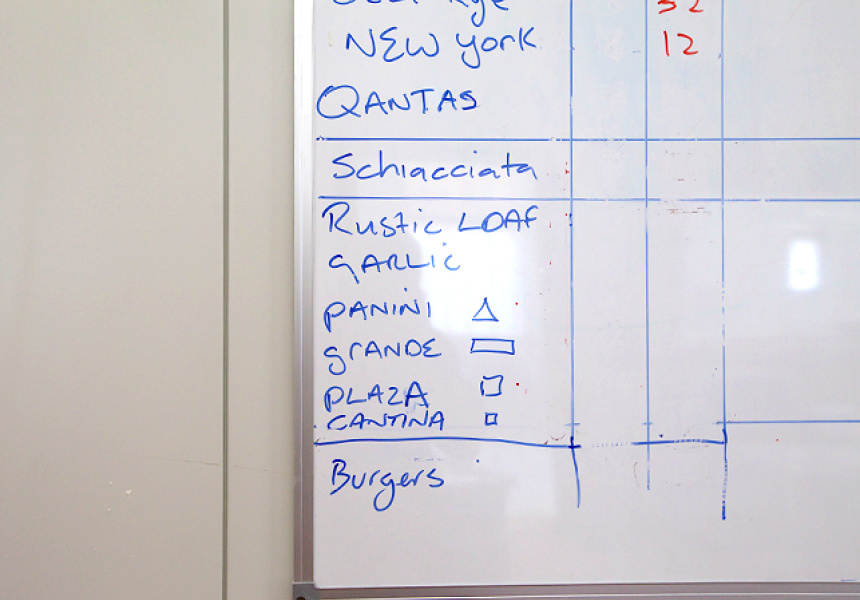 NEW York 12
QANTAS
Schiacciata
Rustic LOAF
GARLIC
PANINI
GRANDE
PLAZA
CANTINA
Burgers